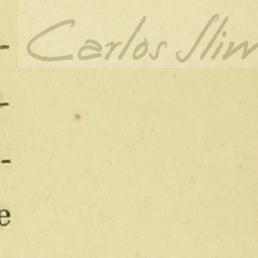 Carlos Slim
-
-
-
e